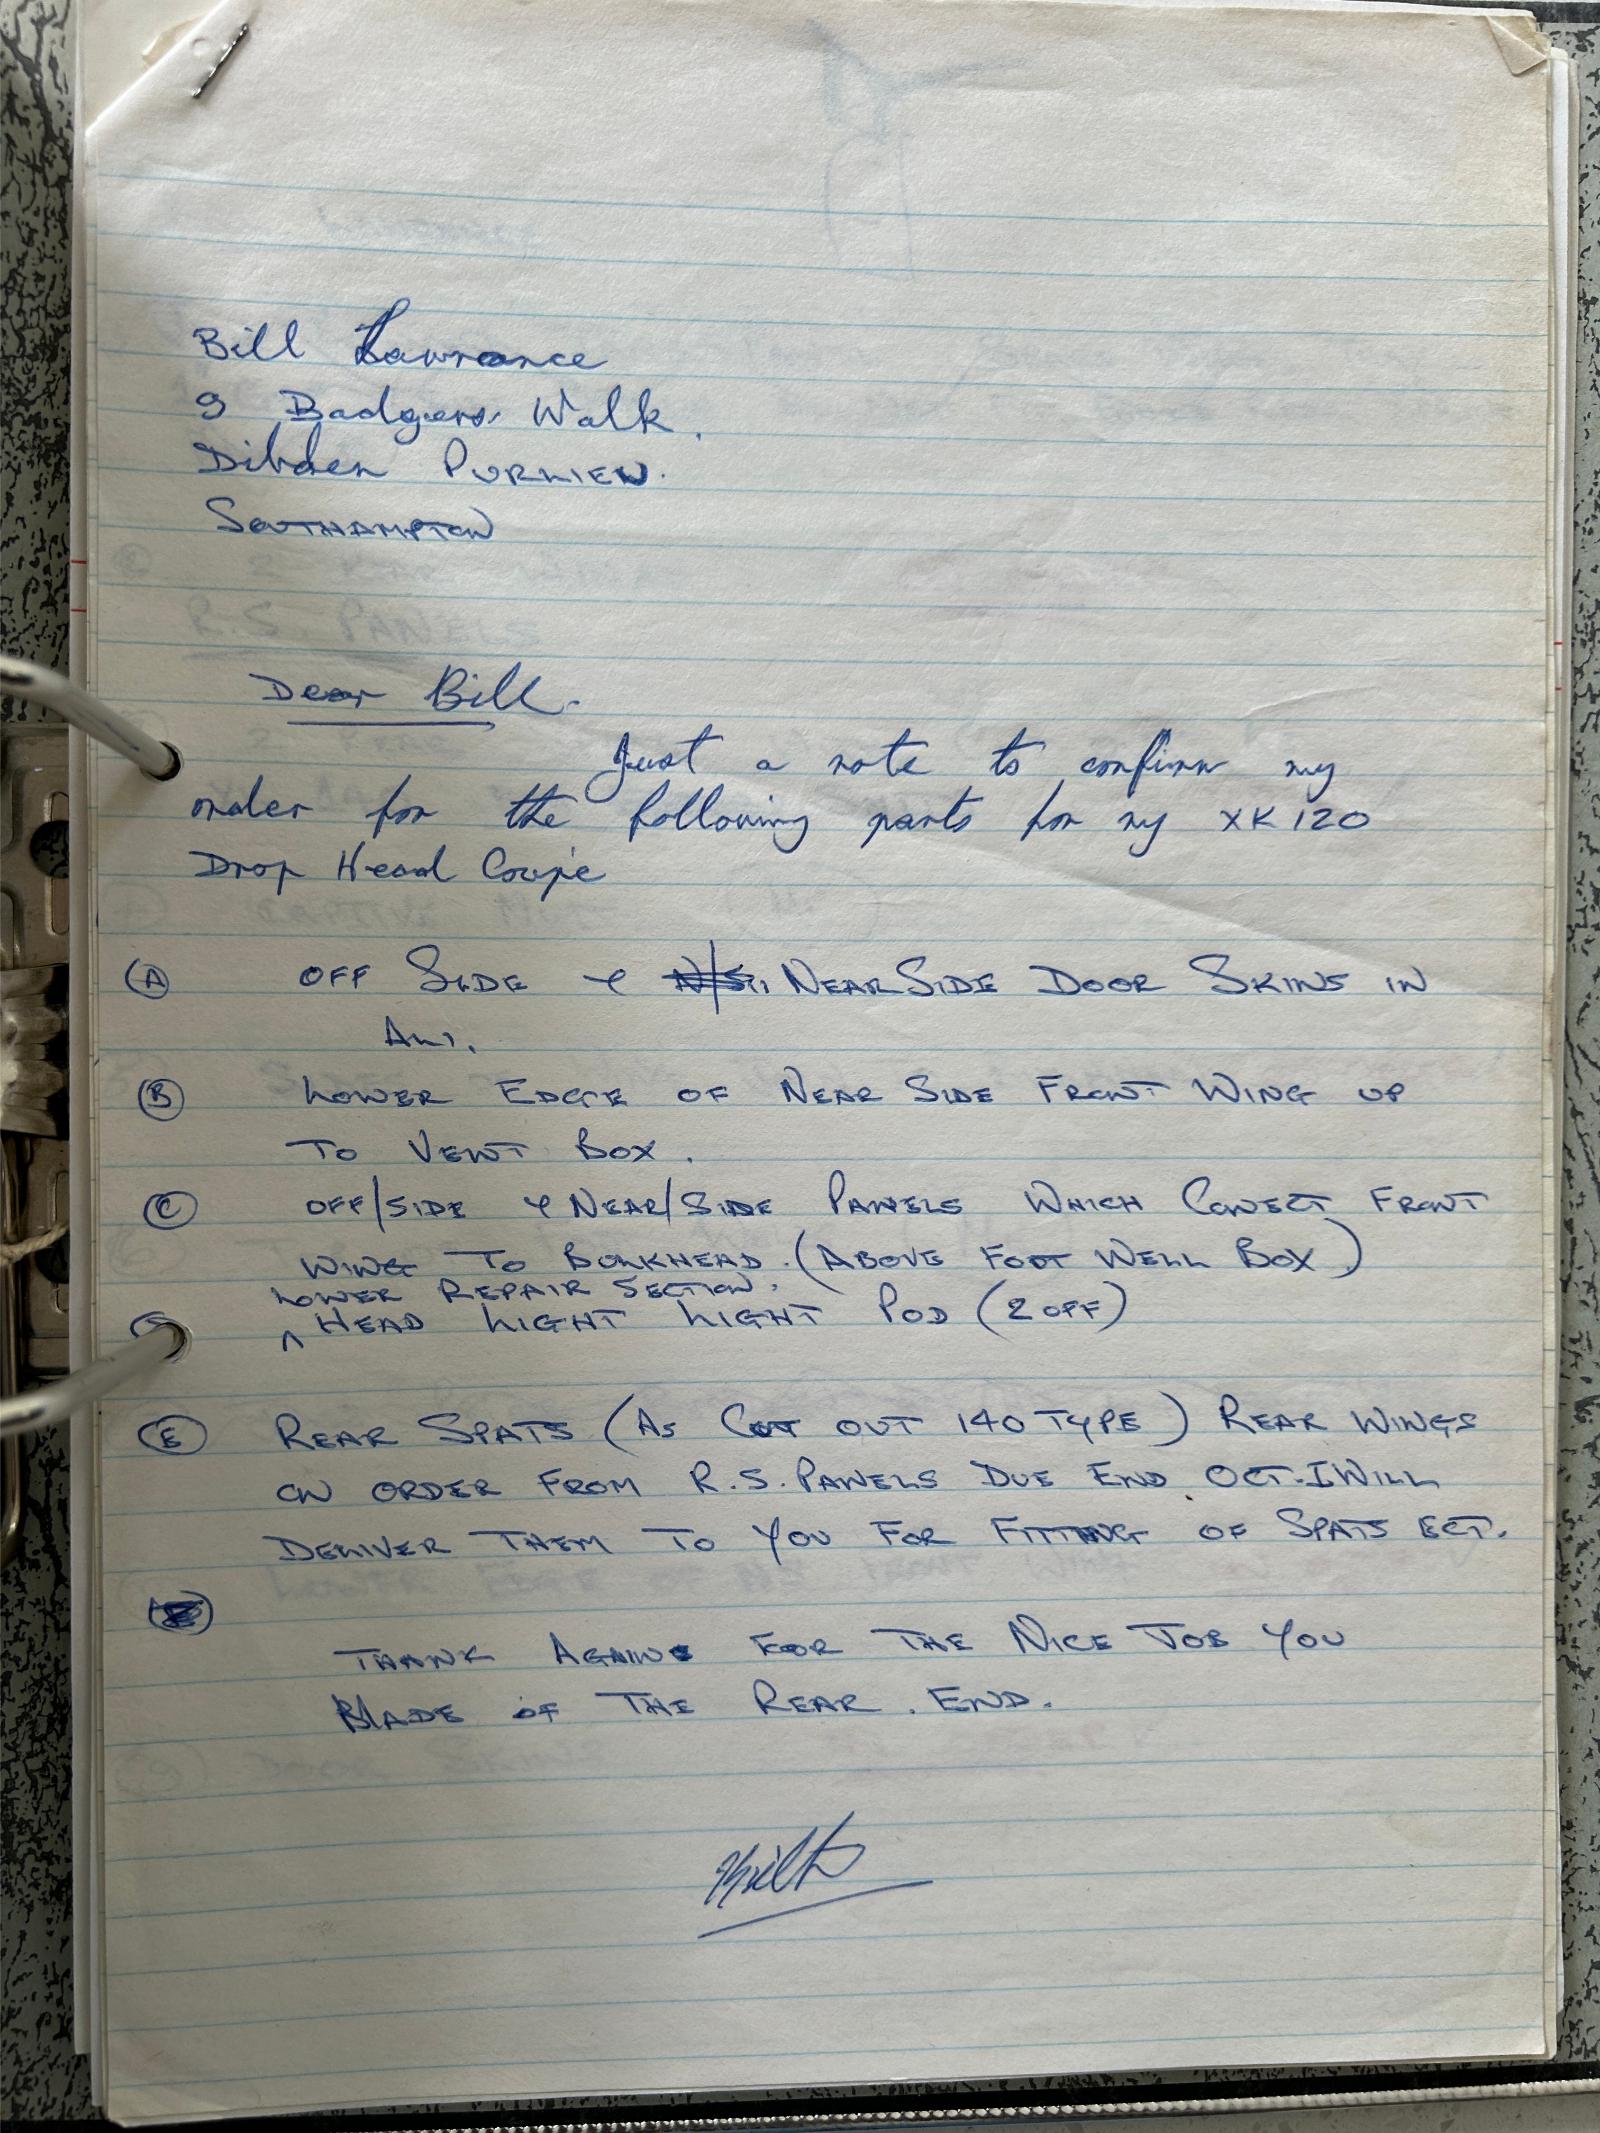 Bill Lawrance
9 Badgers Walk,
Dibden PURLIEW.
SOUTHAMPTON
Dear Bill.
Just a note to confirm my
order for the following parts for my XK 120
Drop Head Coupé
(A) OFF SIDE & N/S NEAR SIDE DOOR SKINS IN
ALI.
(B) LOWER EDGE OF NEAR SIDE FRONT WING UP
TO VENT BOX.
(C) OFF/SIDE & NEAR/SIDE PANELS WHICH CONECT FRONT
WING TO BULKHEAD. (ABOVE FOOT WELL BOX)
LOWER REPAIR SECTION.
^ HEAD LIGHT LIGHT POD (2 OFF)
(E) REAR SPATS (AS CUT OUT 140 TYPE) REAR WINGS
ON ORDER FROM R.S. PANELS DUE END OCT. I WILL
DELIVER THEM TO YOU FOR FITTING OF SPATS ECT.
THANK AGAIN FOR THE NICE JOB YOU
MADE OF THE REAR. END.